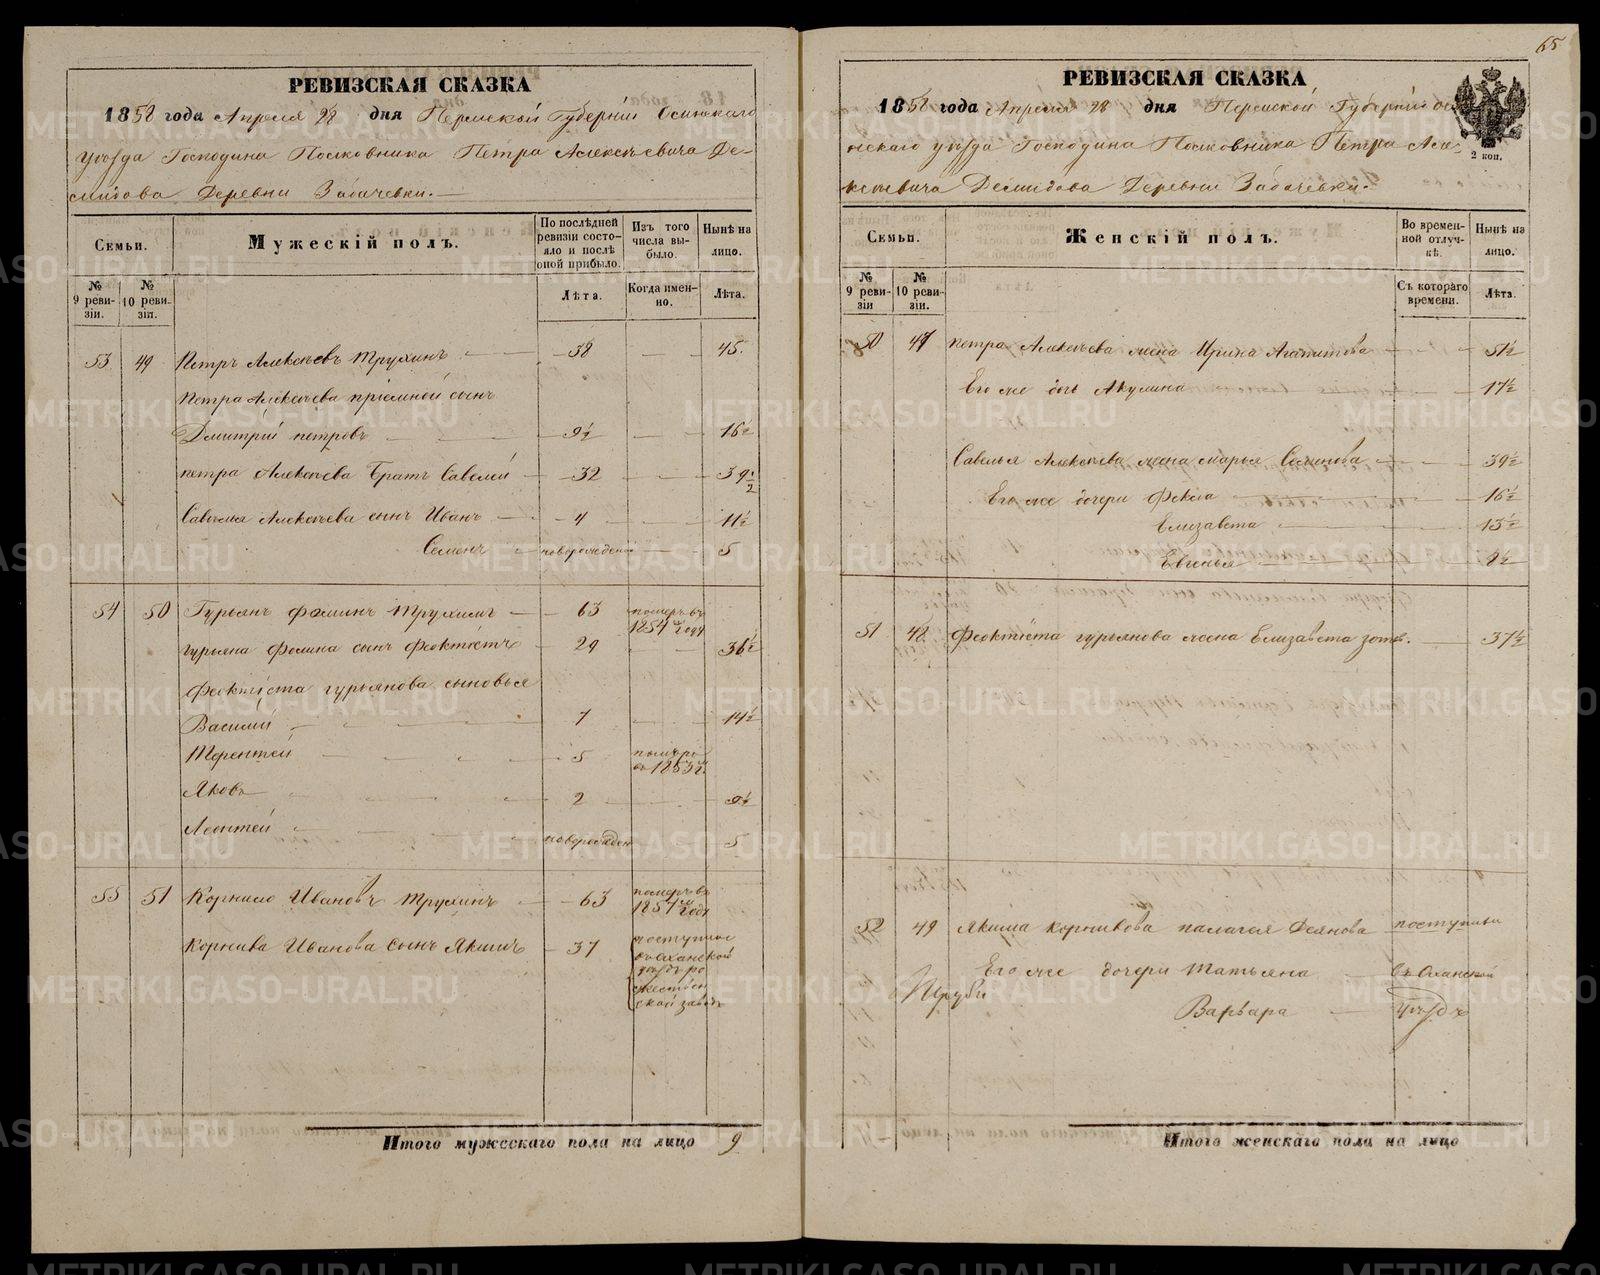 65
РЕВИЗСКАЯ СКАЗКА
1858 года Апреля 28 дня Пермской Губерніи Осинскаго
уѣзда Господина Полковника Петра Алексѣевича Де-
мидова Деревни
Семьи.
Мужескій полъ.
По послѣдней ревизіи состояло и послѣ оной прибыло.
Изъ того числа выбыло.
Нынѣ на лицо.
№ 9 ревизіи.
№ 10 ревизіи.
Лѣта.
Когда именно.
Лѣта.
53 49 Петръ Алексѣевъ Трухинъ 38 45.
Петра Алексѣева пріемной сынъ
Дмитрій Петровъ 9½ 16½
Петра Алексѣева Братъ Савелей 32 39½
Савелья Алексѣева сынъ Иванъ 4 11½
Семенъ новорожденъ 5
54 50 Гурьянъ Фоминъ Трухинъ 63 померъ въ 1854 году
Гурьяна Фомина сынъ Феоктистъ 29 36½
Феоктиста Гурьянова сыновья
Василій 7 14½
Терентей 5 помѣръ въ 1853 г.
Яковъ 2 9½
Леонтей новорожден 5
55 51 Корнило Ивановъ Трухинъ 63 померъ въ 1854 году
Корнила Иванова сынъ Якимъ 37 поступилъ
въ Оханской
уѣздъ ро
жествен
ской заводъ
Итого мужескаго пола на лицо 9
РЕВИЗСКАЯ СКАЗКА
1858 года Апреля 28 дня Пермской Губерніи Ос
инскаго уѣзда Господина Полковника Петра Але-
ксѣевича Демидова Деревни
2 коп.
Семьи.
Женскій полъ.
Во временной отлучкѣ.
Нынѣ на лицо.
№ 9 ревизіи
№ 10 ревизіи.
Съ котораго времени.
Лѣта.
50 47 Петра Алексѣева жена Ирина Агапитова 51½
Его же дочь Акулина 17½
Савелья Алексѣева жена Марья Семенова 39½
Его же дочери Фекла 16½
Елизавета 13½
Евгенья
51 48 Феоктиста Гурьянова жена Елизавета Зотев. 37½
52 49 Якима Корнилова Палагея поступили
Его же дочери Татьяна въ Оханской
Варвара уѣздъ
Итого женскаго пола на лицо
METRIKI.GASO-URAL.RU